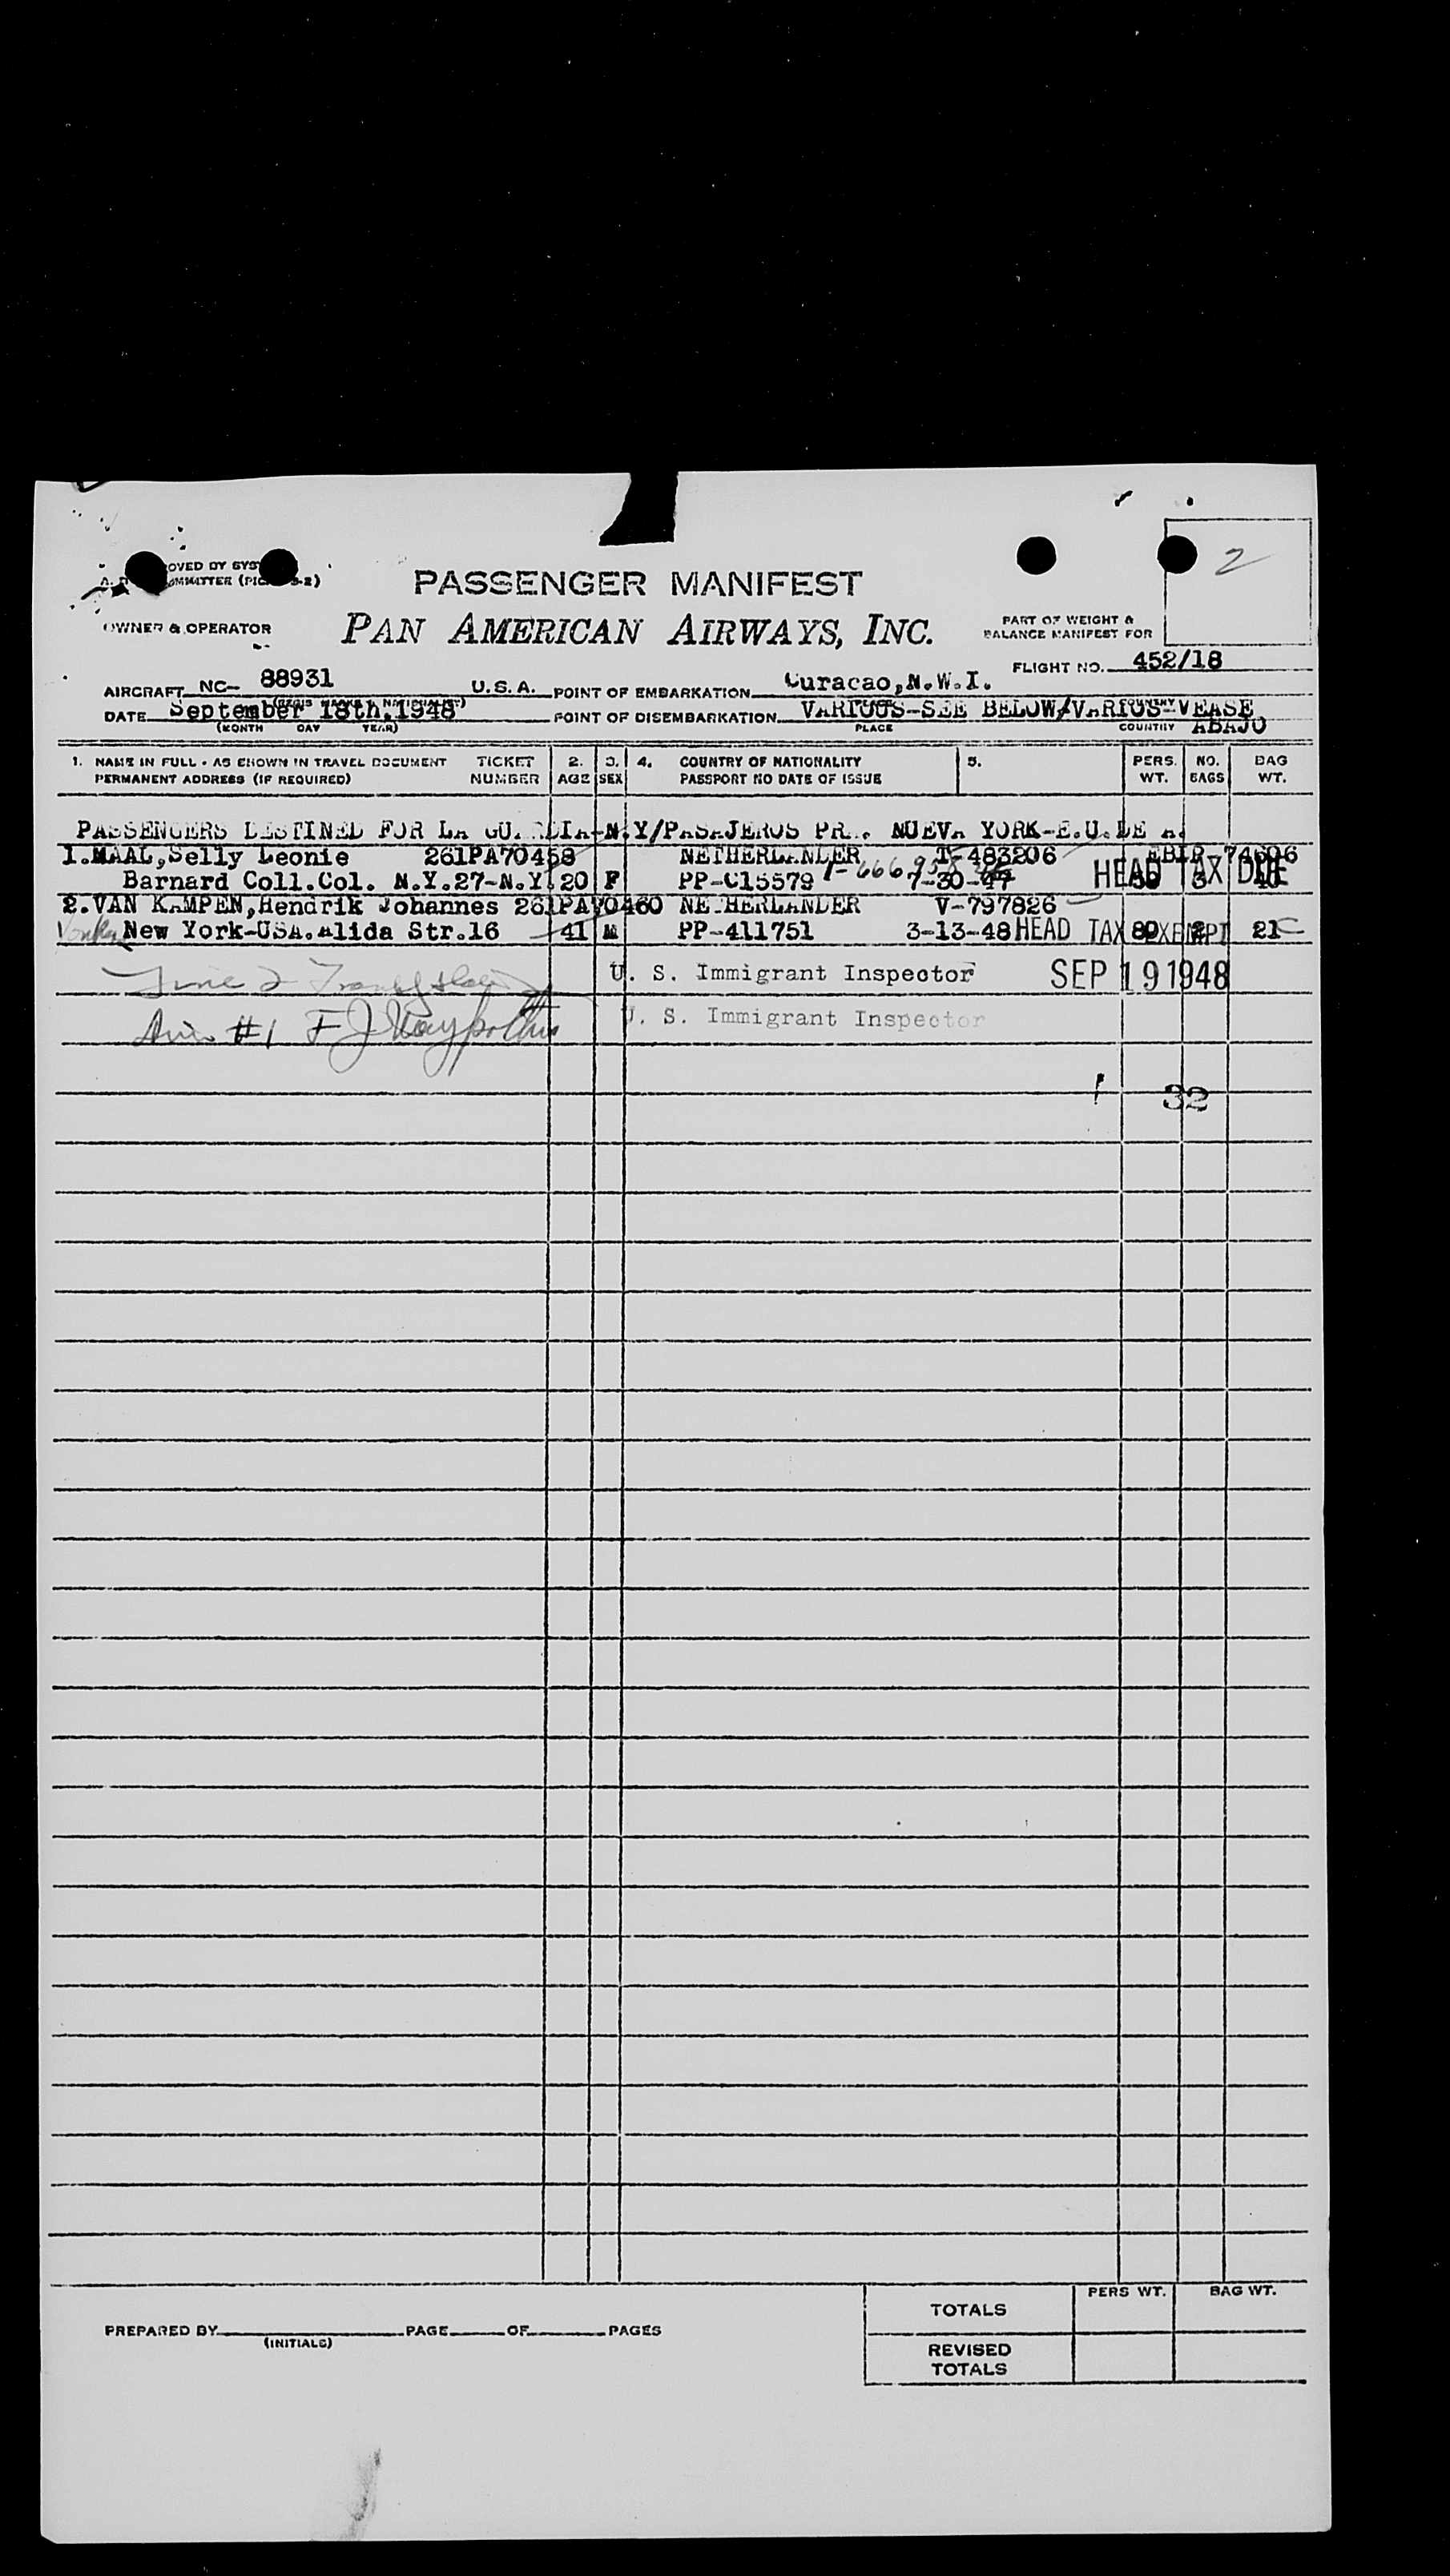 2
PASSENGER MANIFEST
OWNER & OPERATOR
PAN AMERICAN AIRWAYS, INC.
PART OF WEIGHT &
BALANCE MANIFEST FOR
FLIGHT NO. 452/18
AIRCRAFT NC- 88931 U.S.A. POINT OF EMBARKATION Curacao,N.W.I.
DATE September 18th,1948 POINT OF DISEMBARKATION VARIOUS-SEE BELOW/VARIOS-VEASE
(MONTH DAY YEAR) PLACE COUNTRY ABAJO
1. NAME IN FULL - AS SHOWN IN TRAVEL DOCUMENT TICKET 2. 3. 4. COUNTRY OF NATIONALITY 5. PERS. NO. BAG
PERMANENT ADDRESS (IF REQUIRED) NUMBER AGE SEX PASSPORT NO DATE OF ISSUE WT. BAGS WT.
PASSENGERS DESTINED FOR LA GUARDIA-N.Y/PASAJEROS PARA NUEVA YORK-E.U.DE A.
1.MAAL,Selly Leonie 261PA70458 NETHERLANDER T-483206 74606
Barnard Coll.Col. N.Y.27-N.Y. 20 F PP-C15579 7-30-47 HEAD TAX DUE
2.VAN KAMPEN,Hendrik Johannes 261PA70460 NETHERLANDER V-797826
New York-USA.Alida Str.16 41 M PP-411751 3-13-48 HEAD TAX EXEMPT 21
U. S. Immigrant Inspector SEP 19 1948
#1 U. S. Immigrant Inspector
32
PERS WT. BAG WT.
TOTALS
PREPARED BY PAGE OF PAGES
(INITIALS)
REVISED
TOTALS